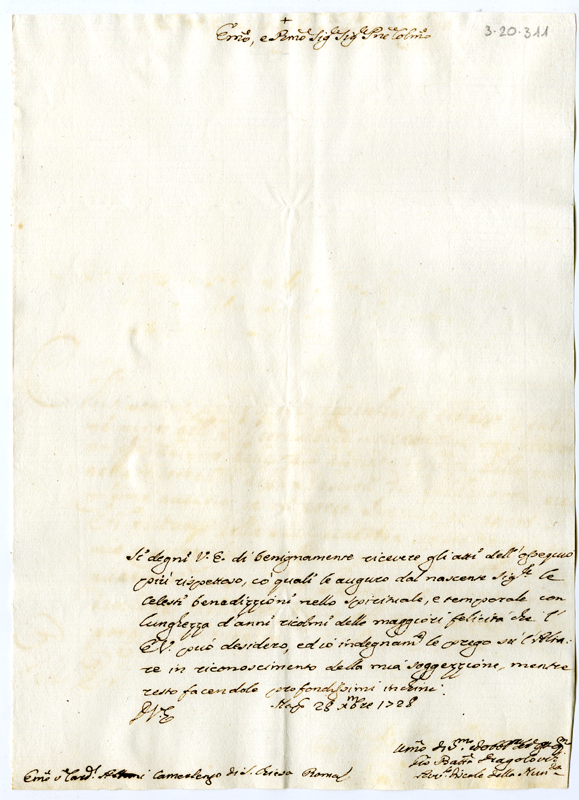 +
Emo, e Rmo Sig.r Sig.r Pne Colmo
3·20·311
Si degni V. E. di benignamente ricevere gli atti dell'ossequio
più rispettoso, co quali le auguro dal nascente Sig.re le
Celesti benedizzioni nello Spirituale, e temporale con
lunghezza d'anni ricolmi delle maggiori felicità che l'
E.V. può desidero, ed io indegnam.te le prego sù l'Altà-
re in riconoscimento della mia soggezzione, mentre
resto facendole profondissimi inchini.
28 Xmbre 1728
D V E
Umo di
della
Emo Card.l Albani Camerlengo di S. Chiesa Roma